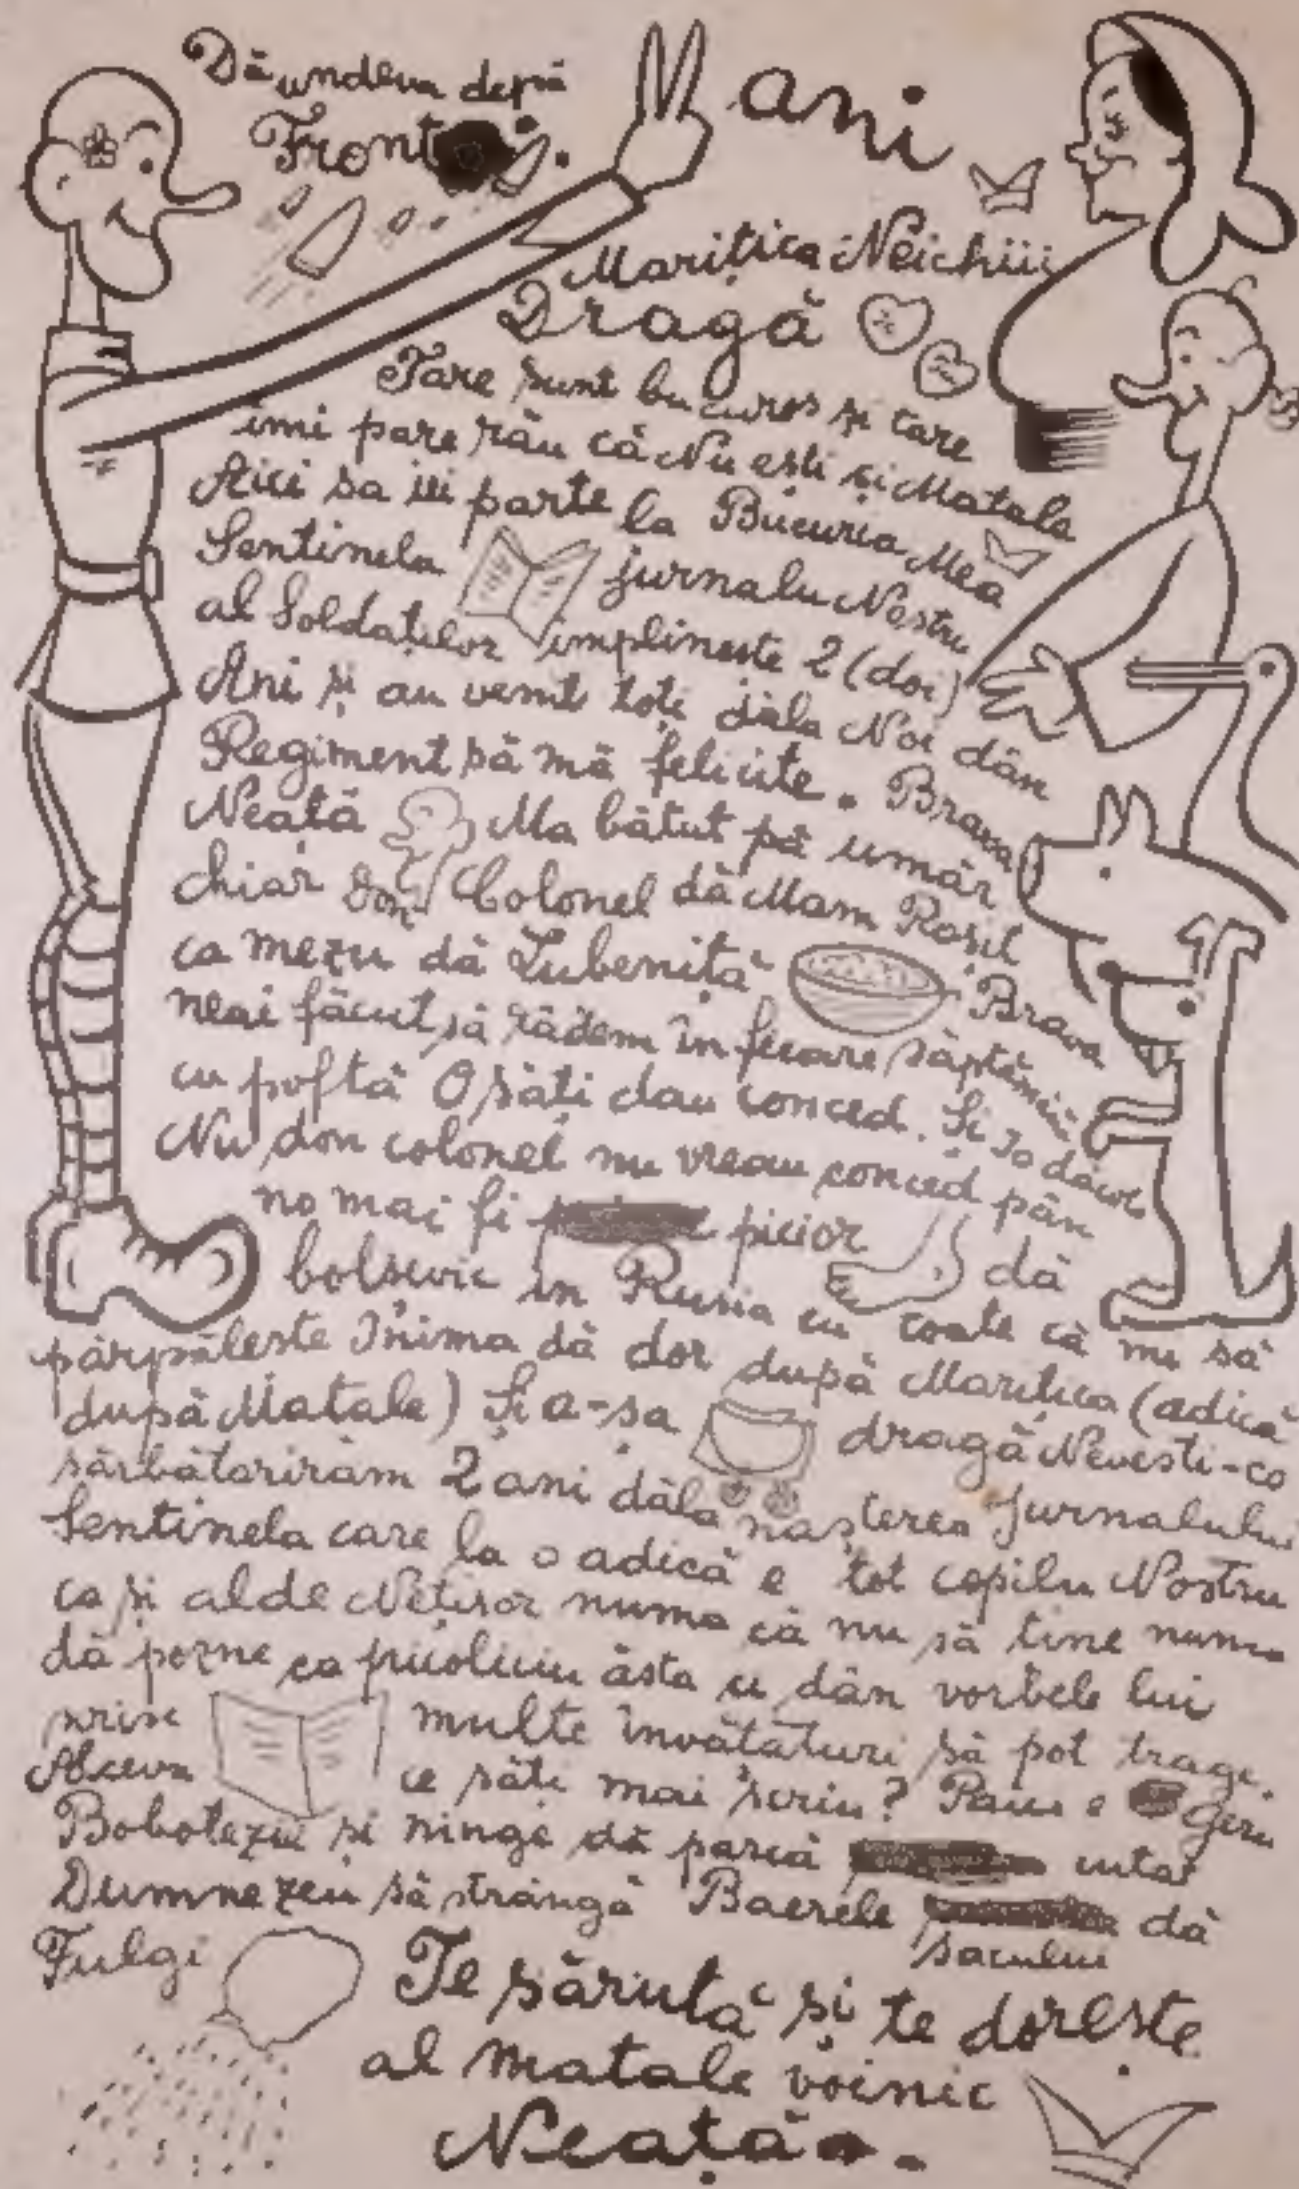 Dă undeva depă
Front
ani
Marițica Neichiii
Dragă
Tare sunt bucuros și tare
imi pare rău că Nu ești și Matale
Aici sa iei parte la Bucuria Mea
Sentinela jurnalu Nostru
al Soldaților implineste 2 (doi)
Ani și au venit toți dăla Noi dân
Regiment să mă felicite. Brava
Neață Ma bătut pă umăr
chiar Don Colonel dă Mam Roșit
ca mezu dă Lubeniță Brava
neai făcut să râdem în fiecare săptămină
cu poftă O săți dau conced. Și Io dăcol
Nu don colonel nu vreau conced păn
no mai fi picior dă
bolsevic in Rusia cu coate că mi să
părpăleste Inima dă dor după Marițica (adică
după Matale) Și a-șa dragă Nevesti-co
sărbătorirăm 2 ani dăla nașterea Jurnalului
Sentinela care la o adică e tot copilu Nostru
ca și alde Nețisor numa că nu să tine numa
dă pozne ca picoliciu ăsta ci dân vorbele lui
scrise multe învătaturi să pot trage.
Altceva ce săti mai scriu? Păi e Geru
Bobotezii și ninge dă parcă uitat
Dumnezeu să strângă Baerele dă
sacului
Fulgi
Te sărută și te doreste
al matale voinic
Neață.